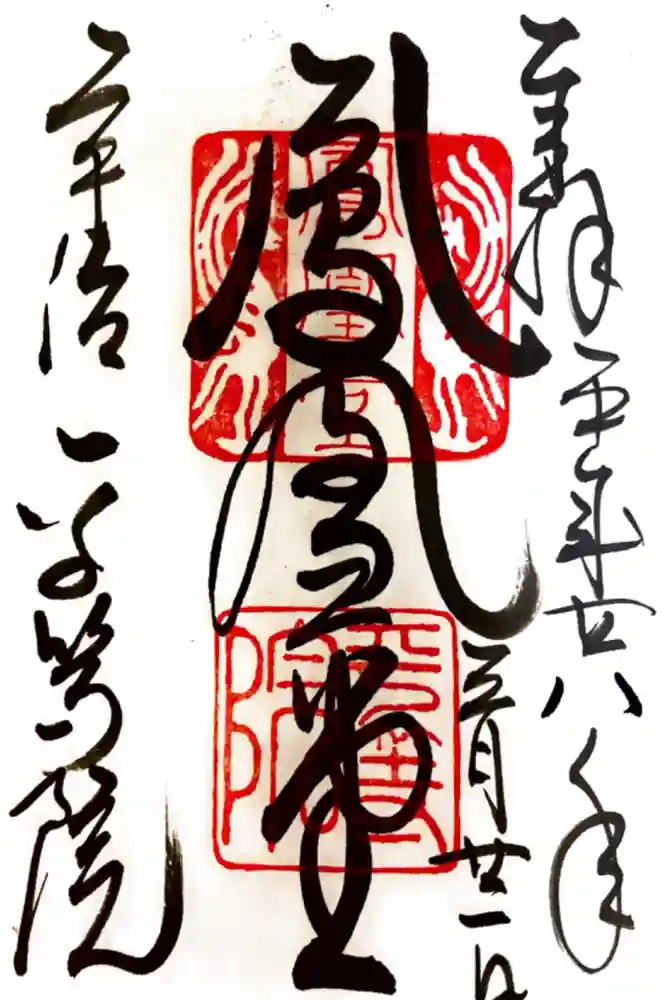 奉拝 平成廿八年
三月廿一日
鳳凰堂
鳳凰堂
平等院
宇治 平等院